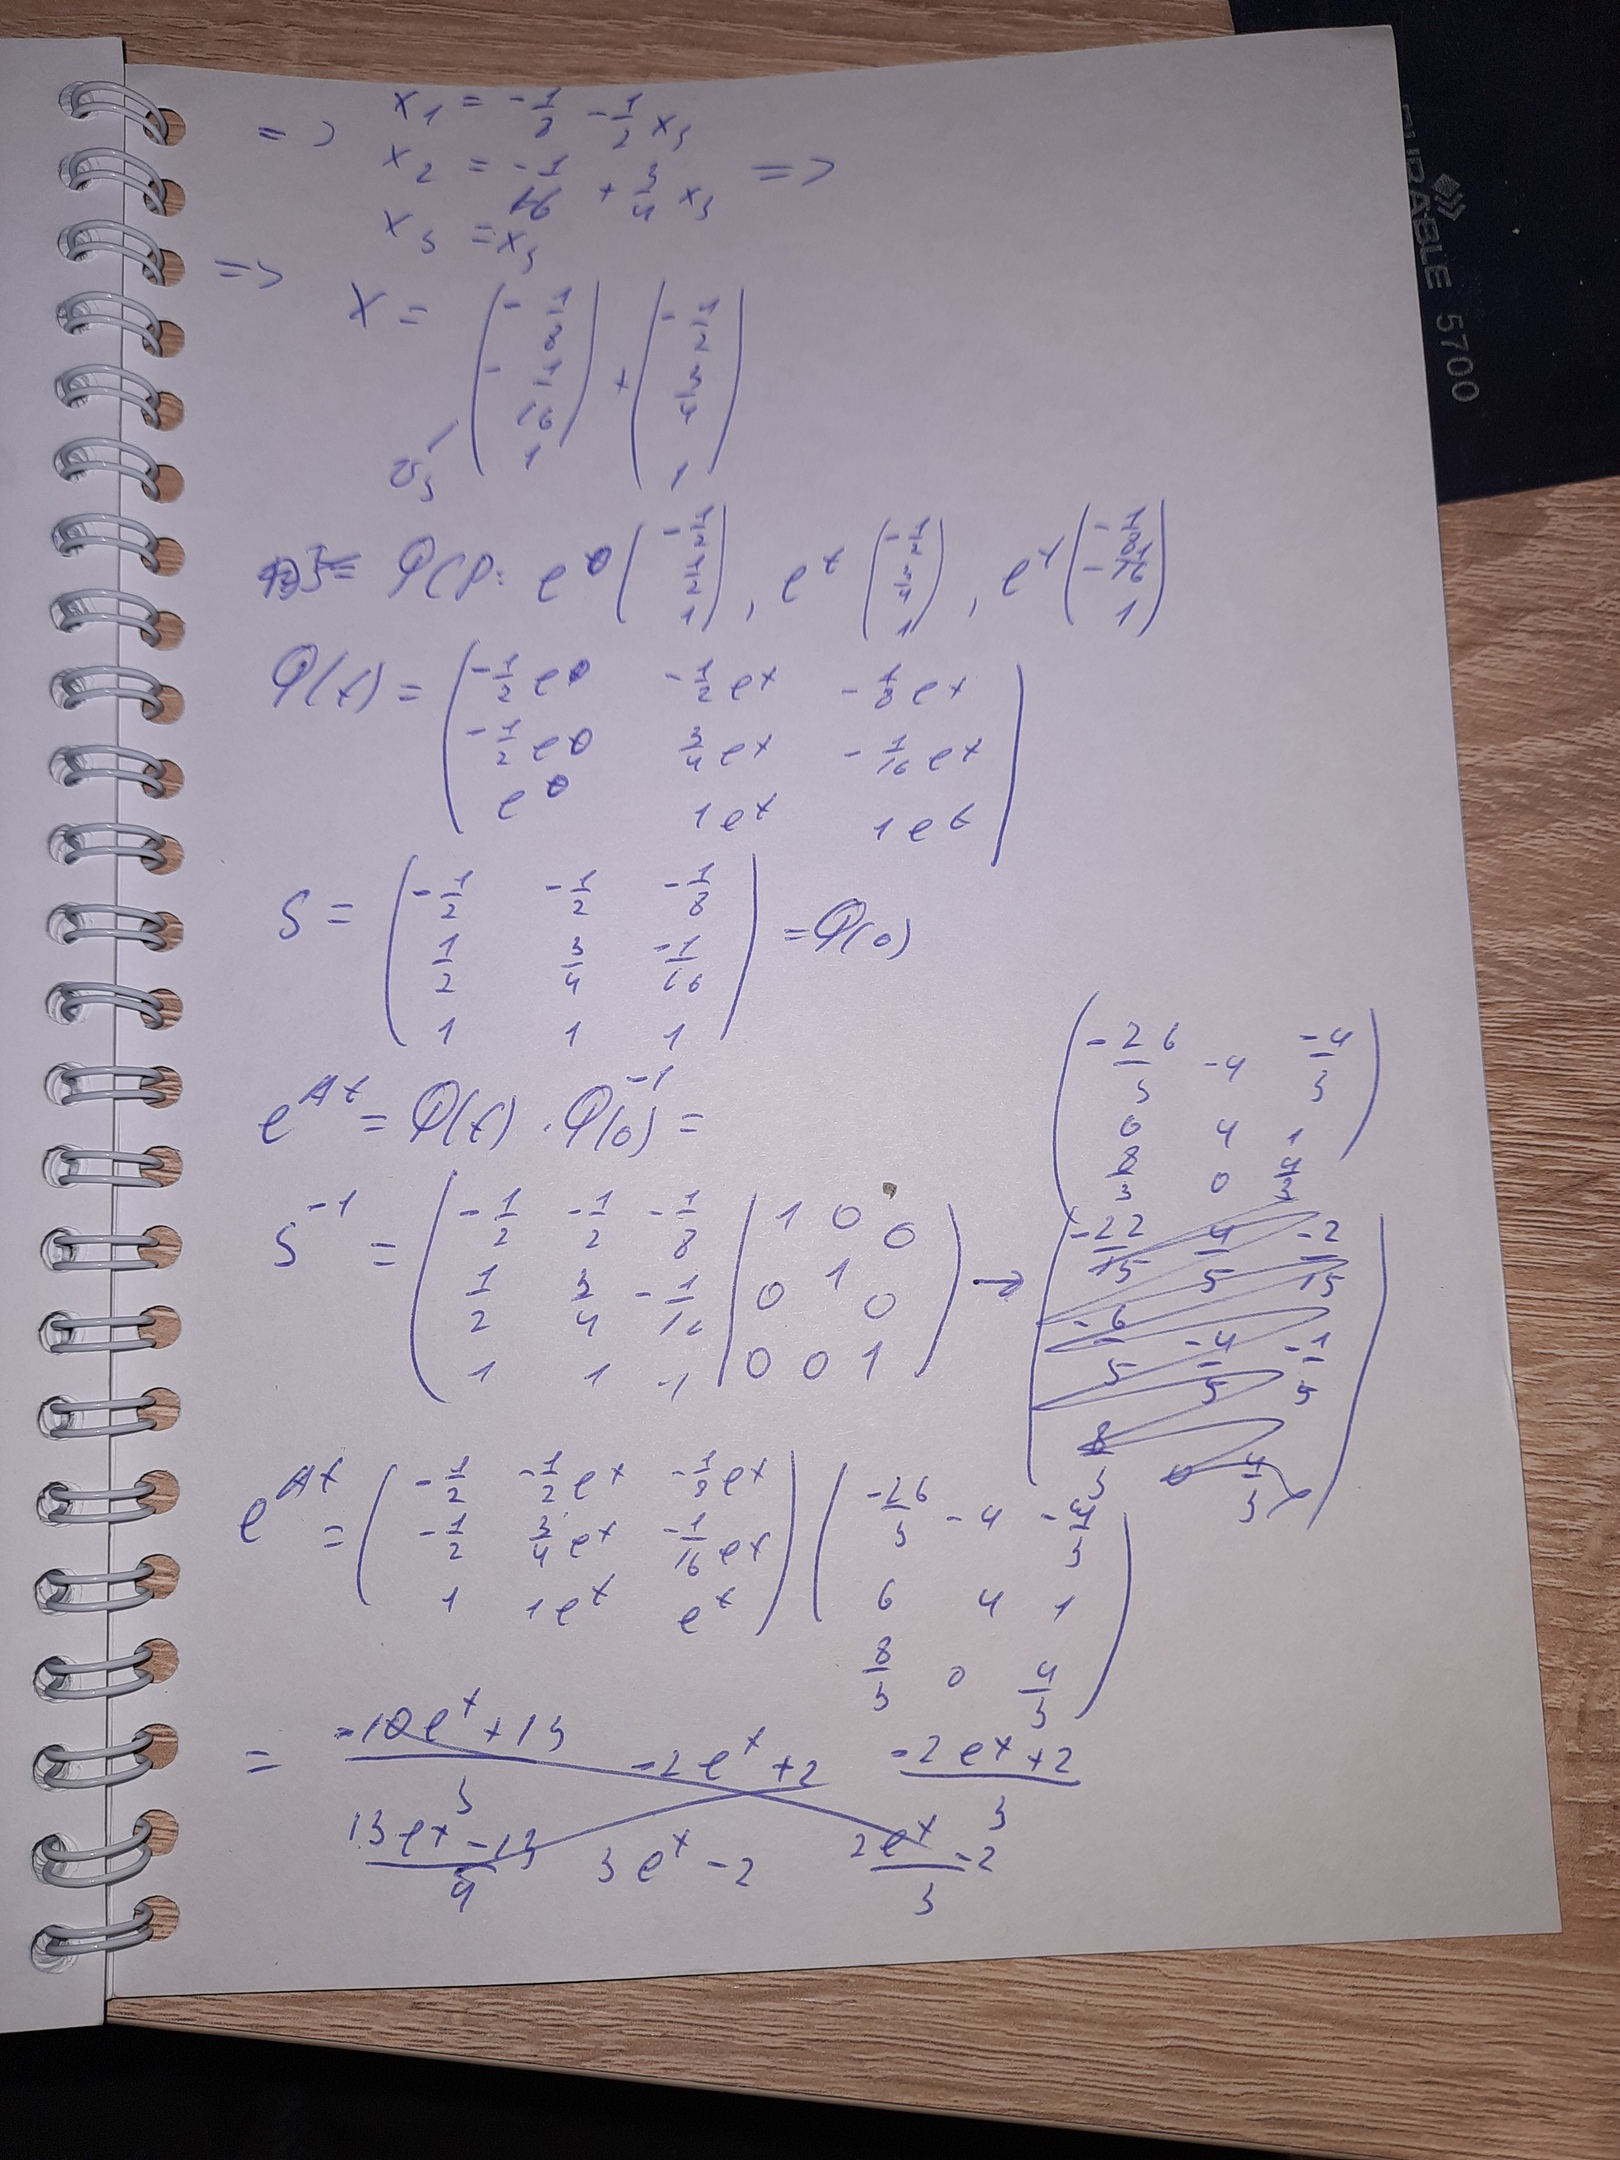 => x₁ = -1/8 - 1/2 x₃
x₂ = -1/16 + 3/4 x₃ =>
x₃ = x₃
=> X = (-1/8; -1/16; 1) + (-1/2; 3/4; 1)
v₃
ФСР: e⁰ (-1/2; 1/2; 1), eᵗ (-1/2; 3/4; 1), eᵗ (-1/8; -1/16; 1)
Φ(t) = ( -1/2 e⁰   -1/2 eᵗ   -1/8 eᵗ
-1/2 e⁰   3/4 eᵗ   -1/16 eᵗ
e⁰   1eᵗ   1eᵗ )
S = ( -1/2   -1/2   -1/8
1/2   3/4   -1/16
1   1   1 ) = Φ(0)
e^{At} = Φ(t) · Φ(0)⁻¹ =
S⁻¹ = ( -1/2   -1/2   -1/8 | 1 0 0
1/2   3/4   -1/16 | 0 1 0
1   1   1 | 0 0 1 ) →
( -26/3   -4   -4/3
6   4   1
8/3   0   4/3 )
( -22/15   -4/5   -2/15
-6/5   -4/5   -1/5
8/3   0   4/3 )
e^{At} = ( -1/2   -1/2 eᵗ   -1/8 eᵗ
-1/2   3/4 eᵗ   -1/16 eᵗ
1   1eᵗ   eᵗ ) ( -26/3   -4   -4/3
6   4   1
8/3   0   4/3 )
= (-10eᵗ+13)/3   -2eᵗ+2   (-2eᵗ+2)/3
(13eᵗ-13)/4   3eᵗ-2   (2eᵗ-2)/3
DURABLE 5700